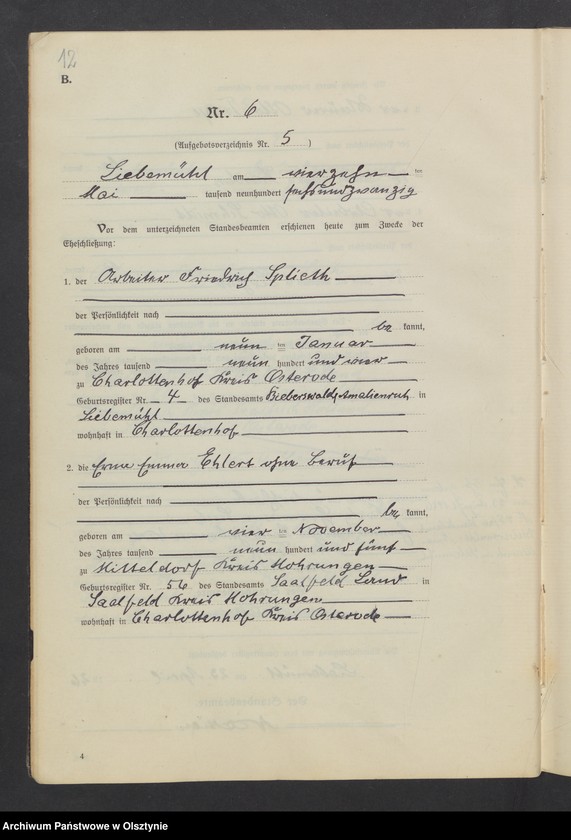 12
B.
Nr. 6
(Aufgebotsverzeichnis Nr. 5 )
Liebemühl am vierzehn ten
Mai tausend neunhundert sechsundzwanzig
Vor dem unterzeichneten Standesbeamten erschienen heute zum Zwecke der
Eheschließung:
1. der Arbeiter Friedrich Splieth
der Persönlichkeit nach
be kannt,
geboren am neun ten Januar
des Jahres tausend neun hundert und vier
zu Charlottenhof Kreis Osterode
Geburtsregister Nr. 4 des Standesamts Bieberswalde Amalienruh in
Liebemühl
wohnhaft in Charlottenhof
2. die Erna Emma Ehlert ohne Beruf
der Persönlichkeit nach
be kannt,
geboren am vier ten November
des Jahres tausend neun hundert und fünf
zu Mitteldorf Kreis Mohrungen
Geburtsregister Nr. 56 des Standesamts Saalfeld Land in
Saalfeld Kreis Mohrungen
wohnhaft in Charlottenhof Kreis Osterode
4
Archiwum Państwowe w Olsztynie